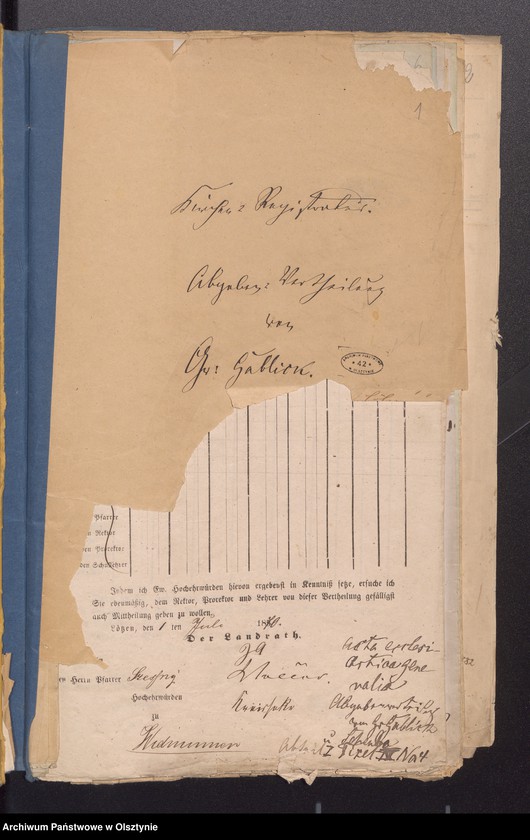 1
2
Kirchen: Registratur.
Abgaben: Vertheilung
von
Gr: Gablick.
* 42 *
Pfarrer
n Rektor
en Prorektor
den Schullehrer
Indem ich Ew. Hochehrwürden hievon ergebenst in Kenntniß setze, ersuche ich
Sie ebenmäßig, dem Rektor, Prorektor und Lehrer von dieser Vertheilung gefälligst
auch Mittheilung geben zu wollen.
Lötzen, den 1 ten Juli 18
Der Landrath.
en Herrn Pfarrer
Hochehrwürden
zu
Widminnen
acta ecclesi-
astica gene
ralia
Abgabenvertheilg
von Gr Gablick
No 4
Archiwum Państwowe w Olsztynie